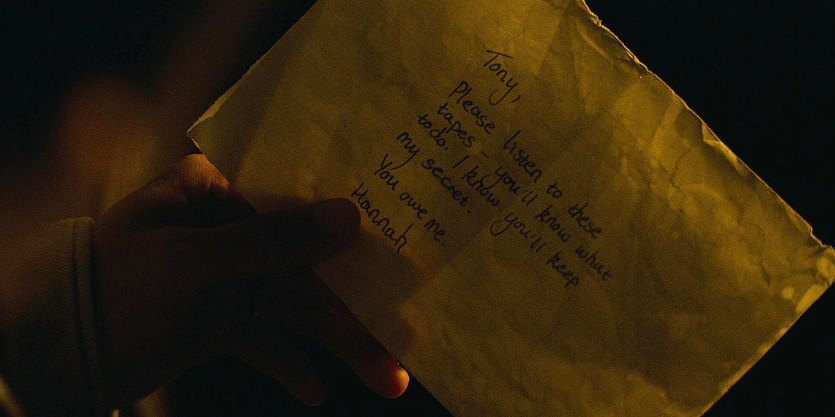 Tony,
Please listen to these
tapes - you'll know what
todo. I know you'll keep
my secret.
You owe me.
Hannah